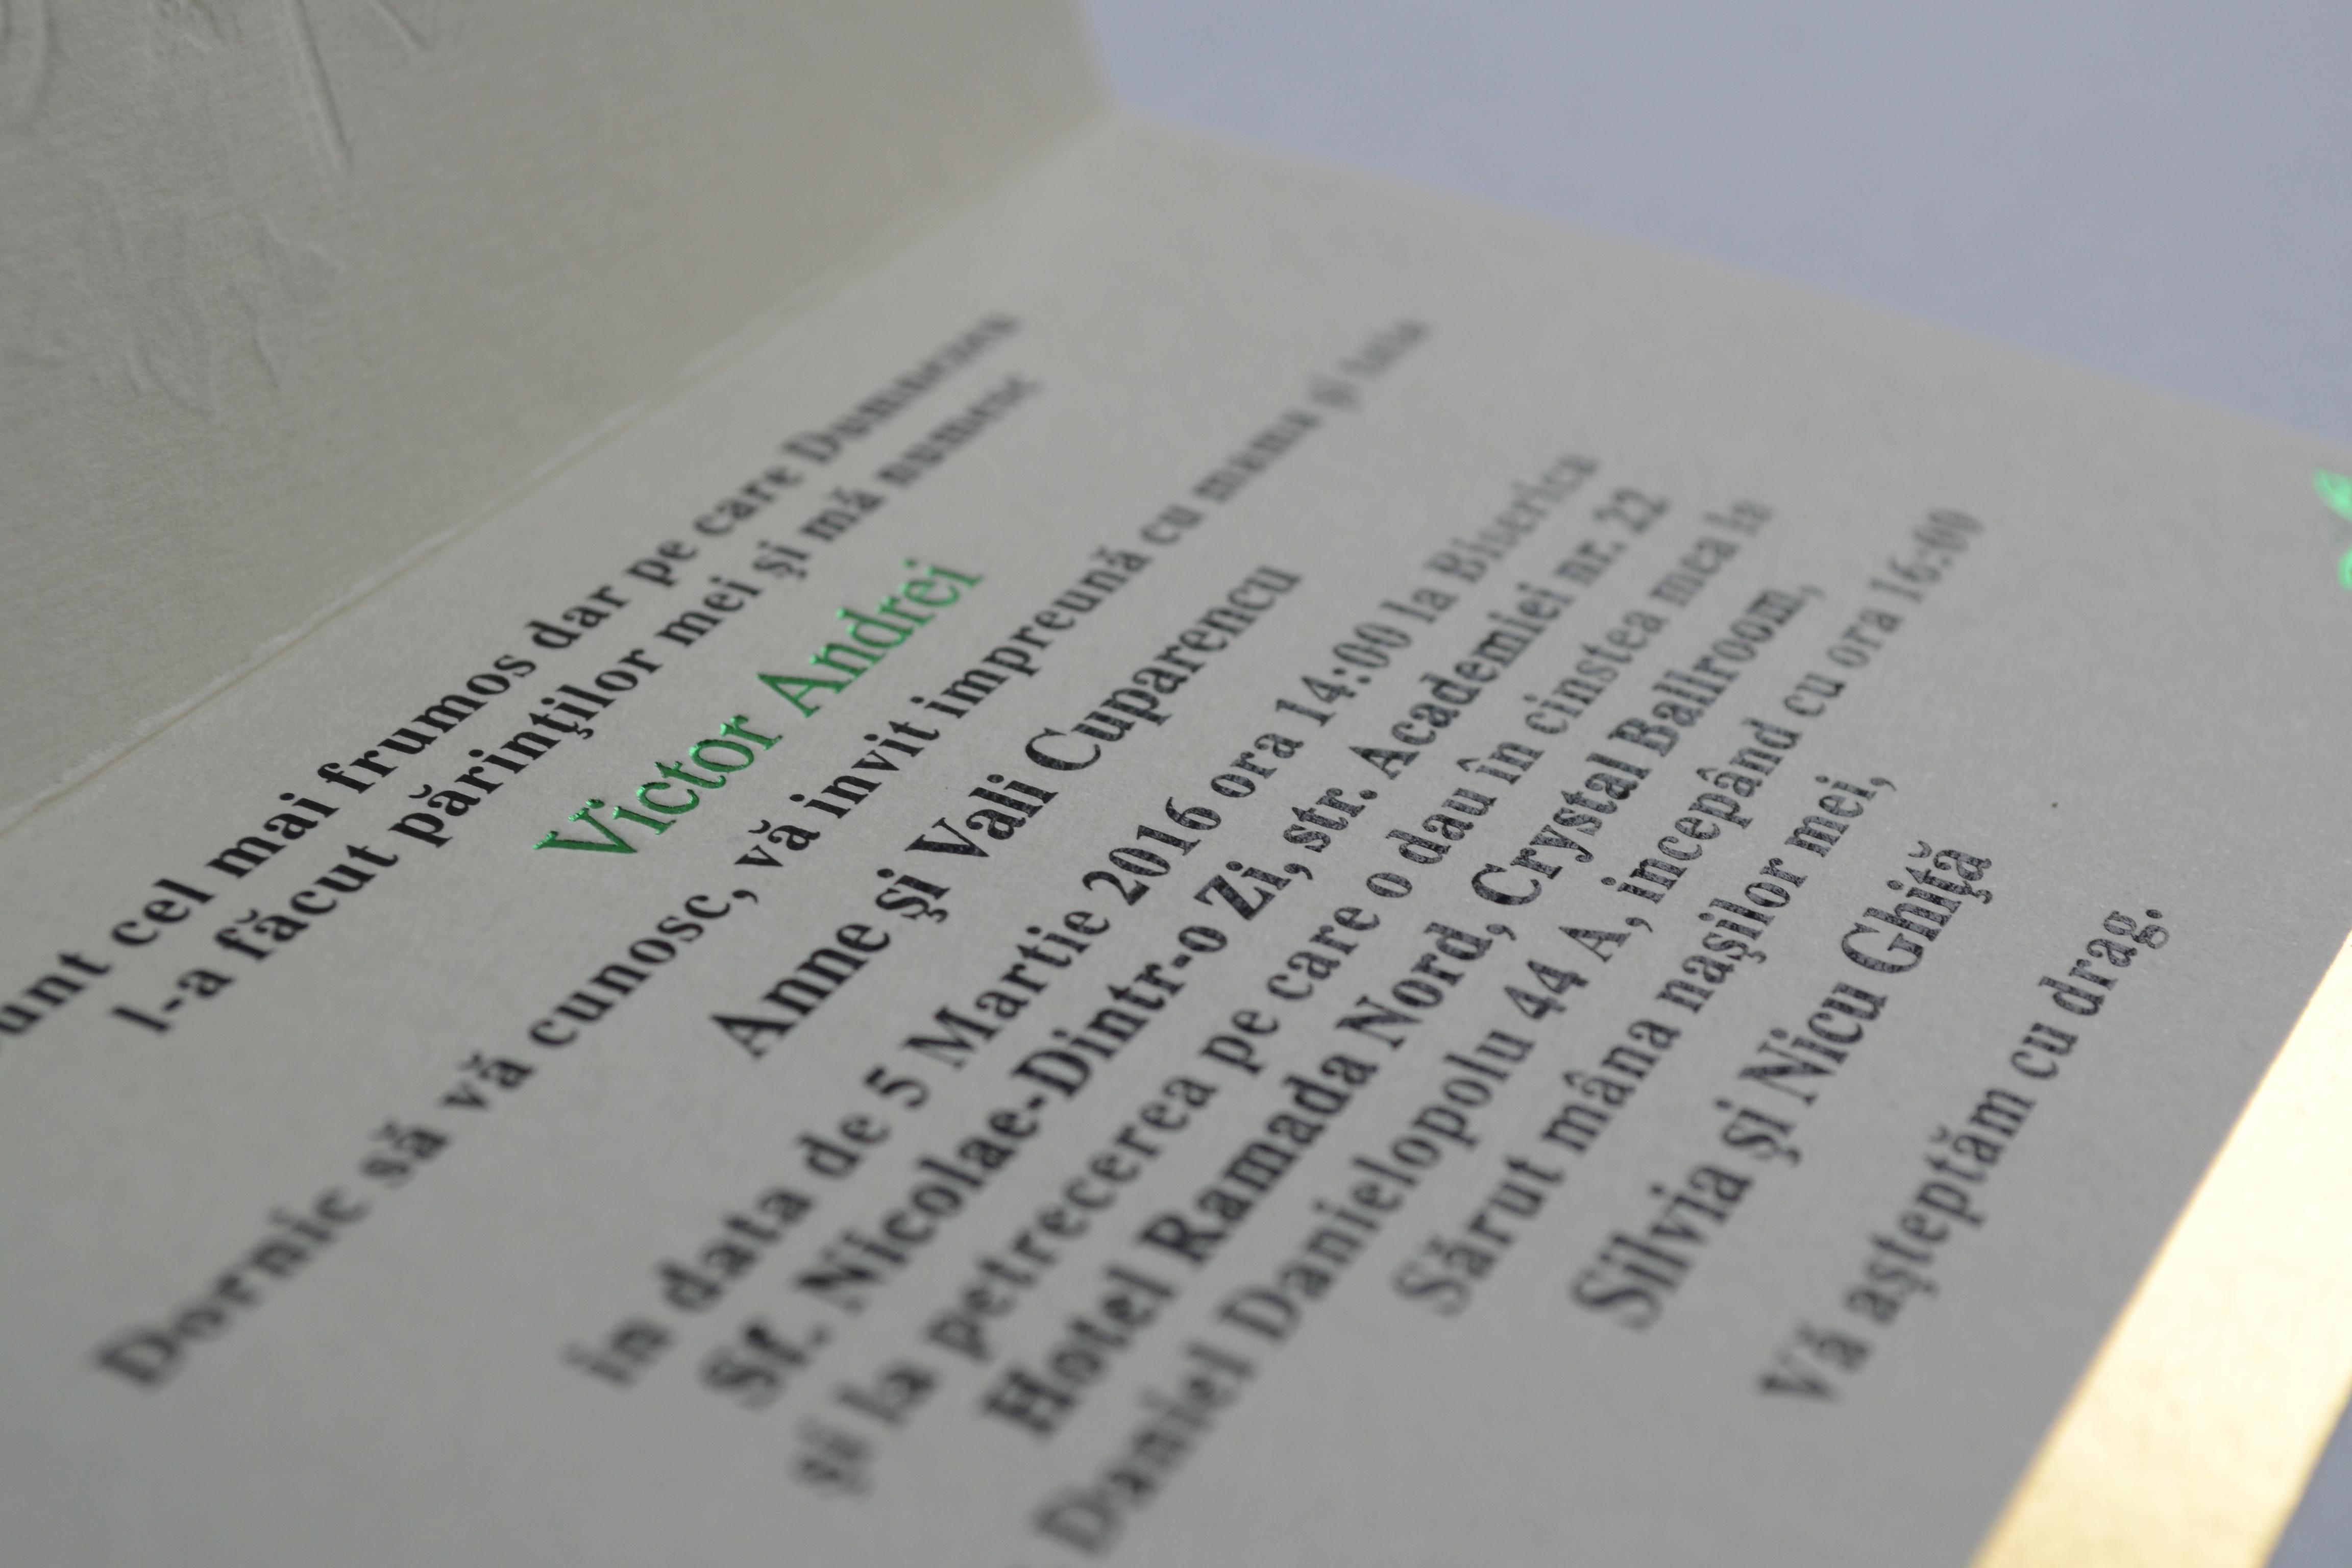 Sunt cel mai frumos dar pe care Dumnezeu
l-a făcut părinţilor mei şi mă numesc
Victor Andrei
Dornic să vă cunosc, vă invit impreună cu mama şi tata
Anne şi Vali Cuparencu
in data de 5 Martie 2016 ora 14:00 la Biserica
Sf. Nicolae-Dintr-o Zi, str. Academiei nr. 22
şi la petrecerea pe care o dau în cinstea mea la
Hotel Ramada Nord, Crystal Ballroom,
Daniel Danielopolu 44 A, incepând cu ora 16:00
Sărut mâna naşilor mei,
Silvia şi Nicu Ghiţă
Vă aşteptăm cu drag.